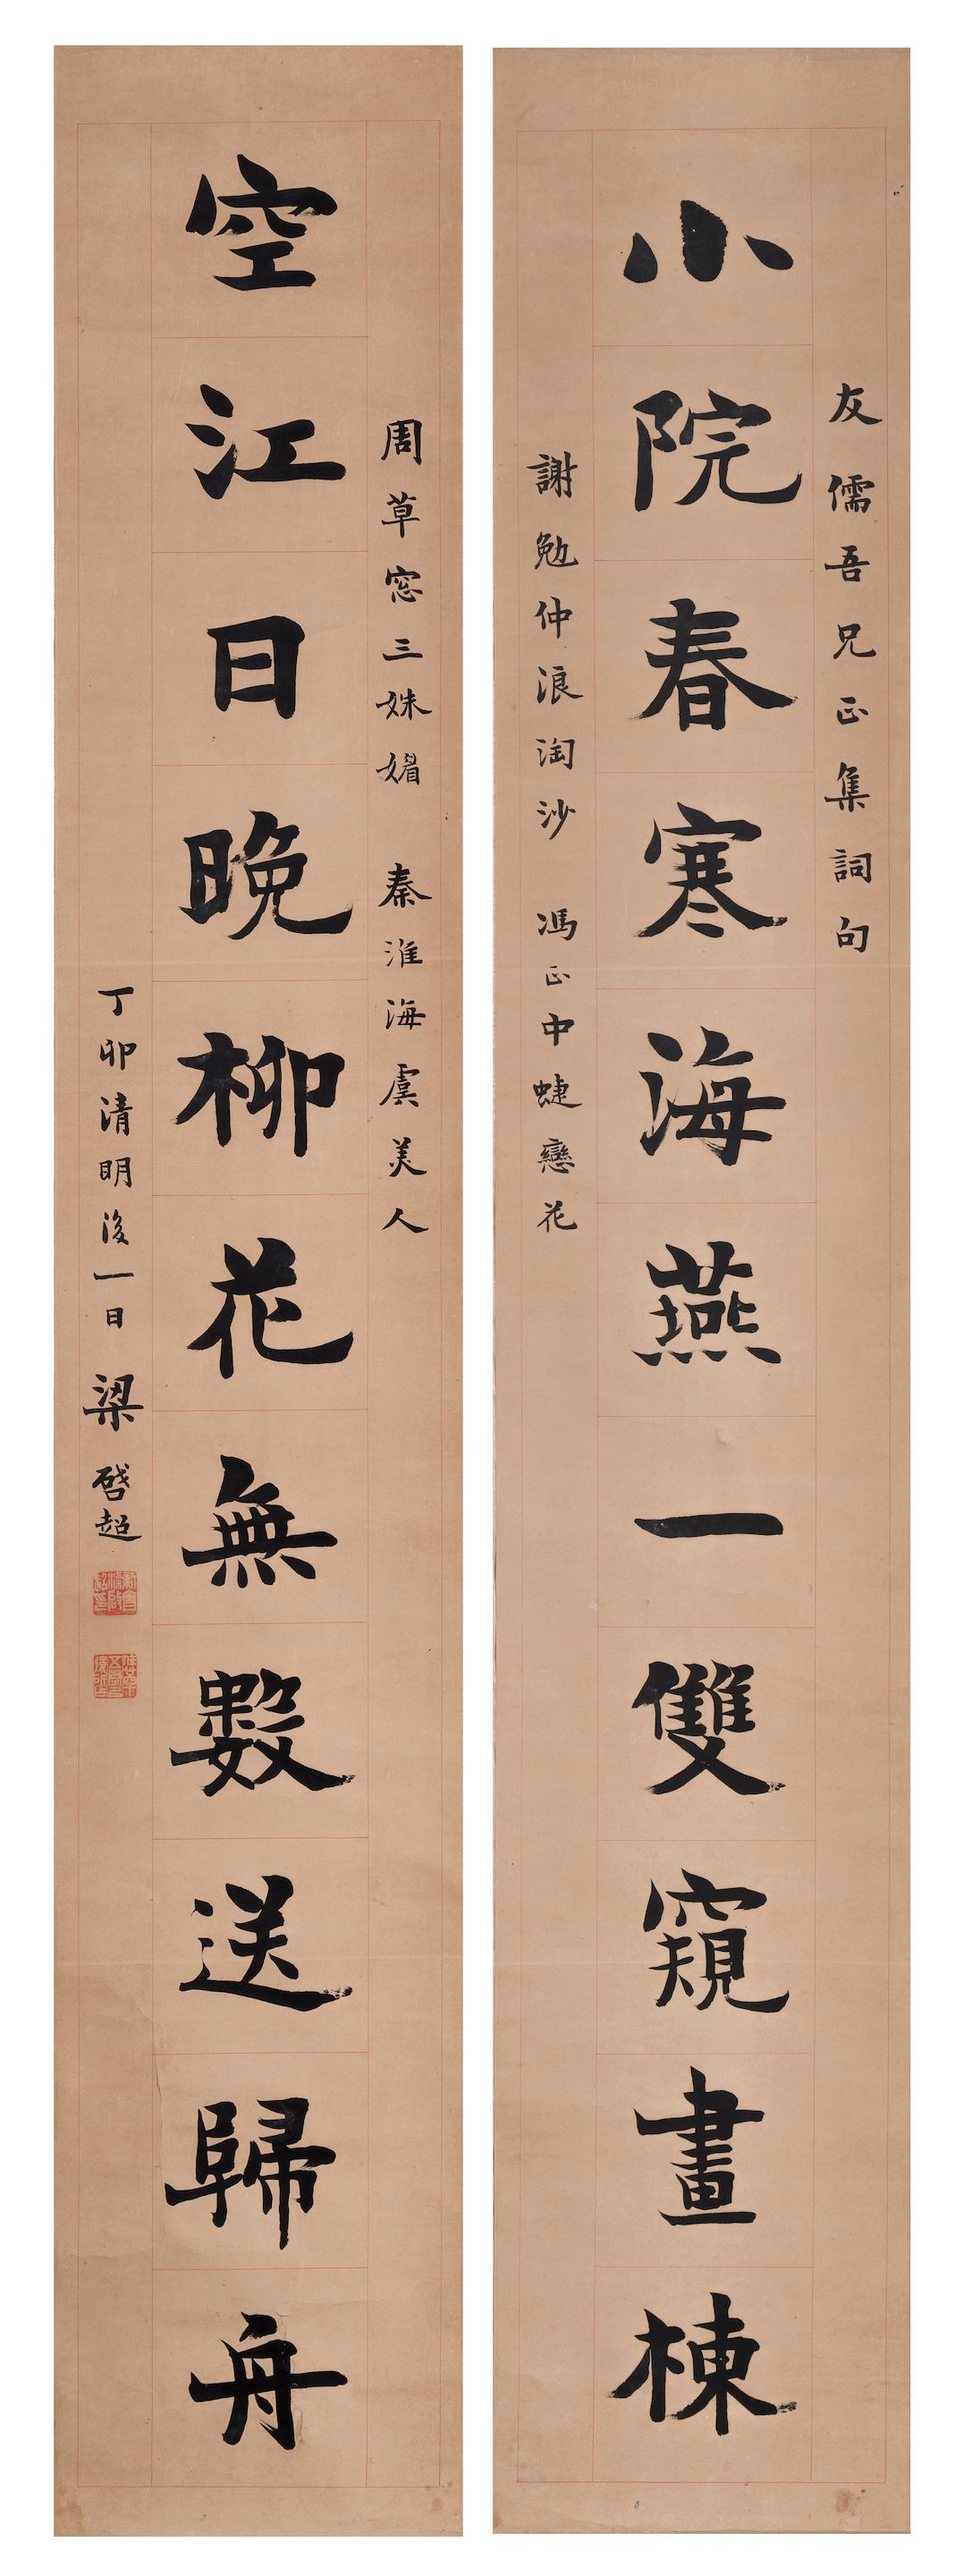 友儒吾兄正集詞句
小院春寒海燕一雙窺畫棟
謝勉仲浪淘沙　馮正中蜨戀花
周草窓三姝媚　秦淮海虞美人
空江日晚柳花無數送歸舟
丁卯清明後一日梁啓超